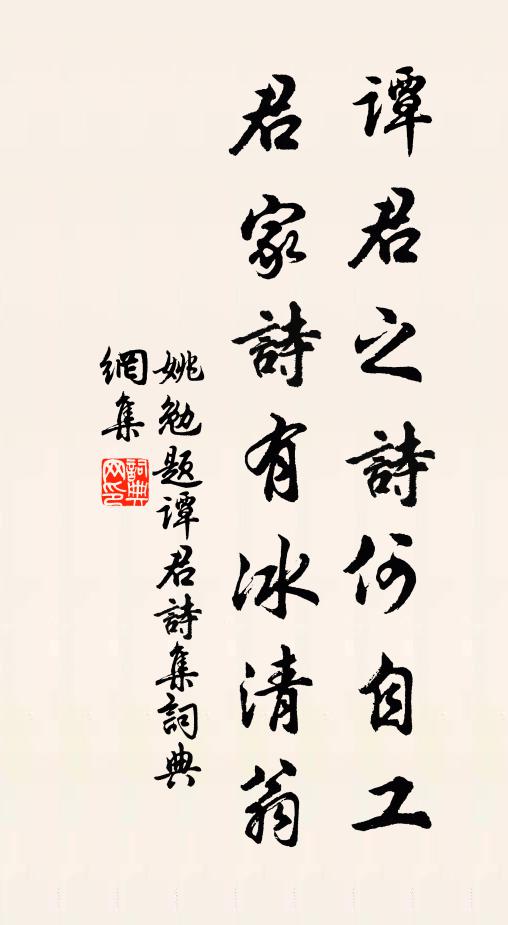 谭君之詩何自工
君家詩有冰清翁
姚勉题谭君詩集詞典
網集
詞典
网印